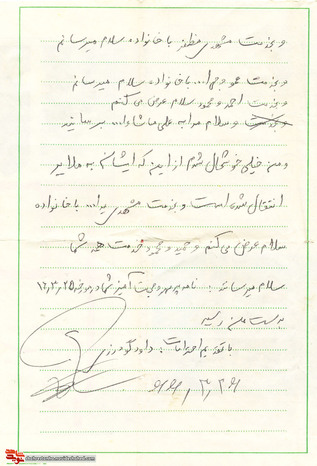 و بخدمت مشهدی مظفر با خانواده سلام میرسانم
و بخدمت عمو جهان... با خانواده سلام میرسانم
و بخدمت احمد و محمود سلام عرض می کنم
و سلام مرا به علی ماشاءا... برسانید
و من خیلی خوشحال شدم از این که ایشان به ملایر
انتقال شده است و بخدمت مشهدی یدا... با خانواده
سلام عرض می کنم و حمید و محمود خدمت همه شما
سلام میرسانند : نامه پر مهر و محبت آمیز شما در مورخه
بدست من رسید
با تقدیم احترامات : داود گودرزی